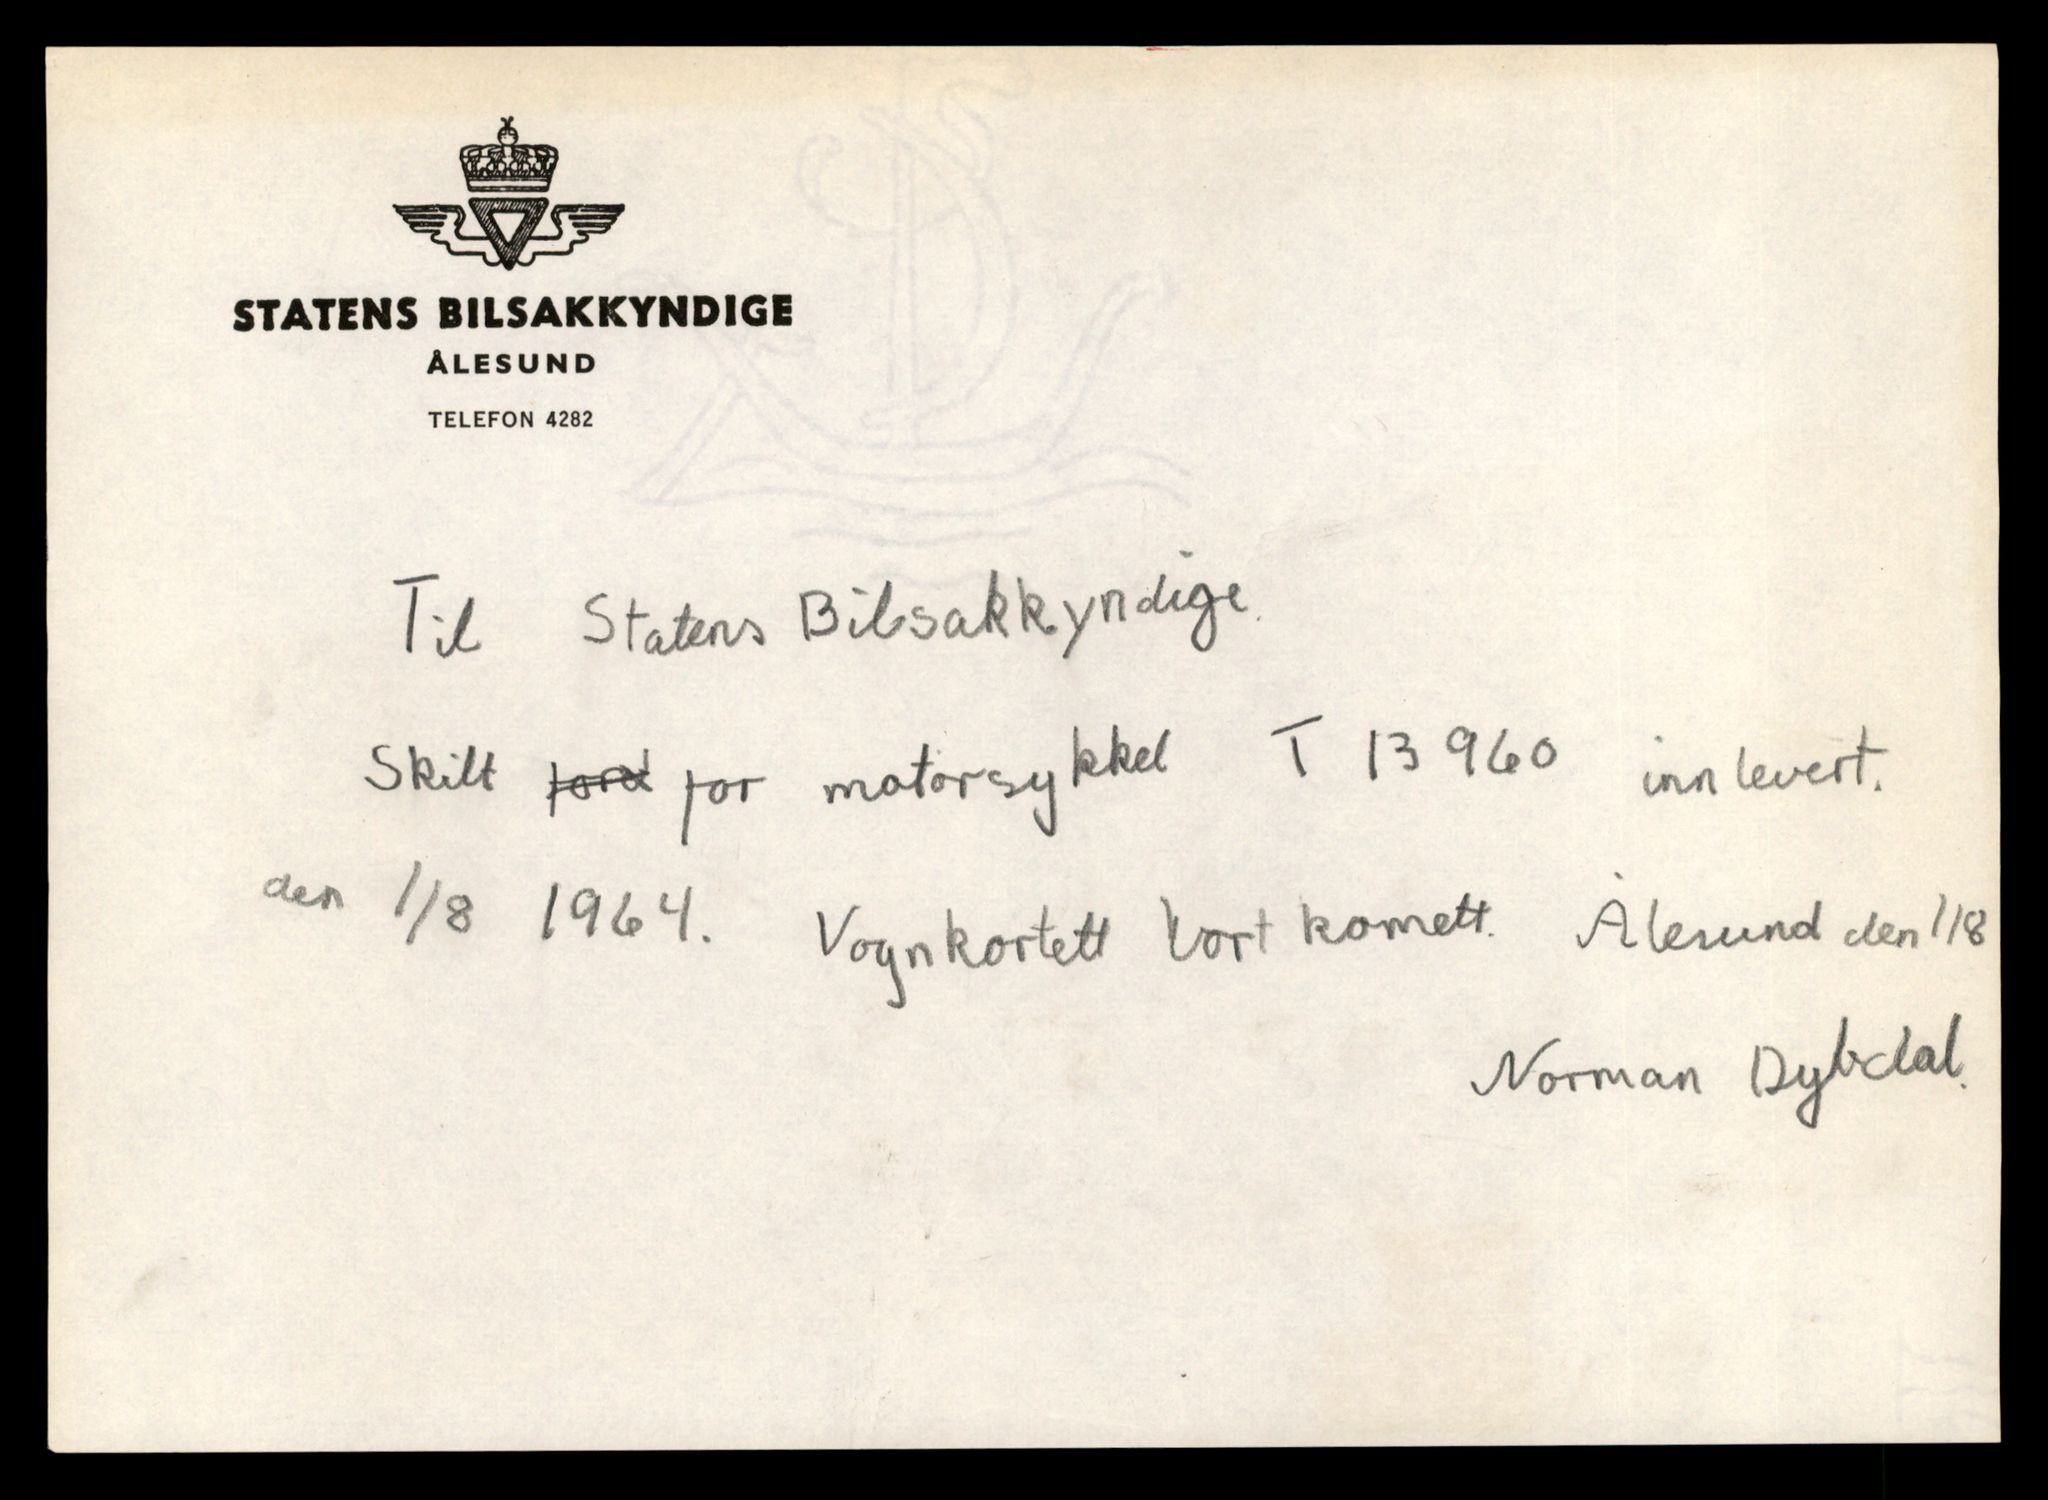 STATENS BILSAKKYNDIGE
ÅLESUND
TELEFON 4282
Til Statens Bilsakkyndige.
Skilt ford for motorsykkel T 13960 innlevert.
den 1/8 1964. Vognkortett bort komett. Ålesund den 1/8
Norman Dybdal.